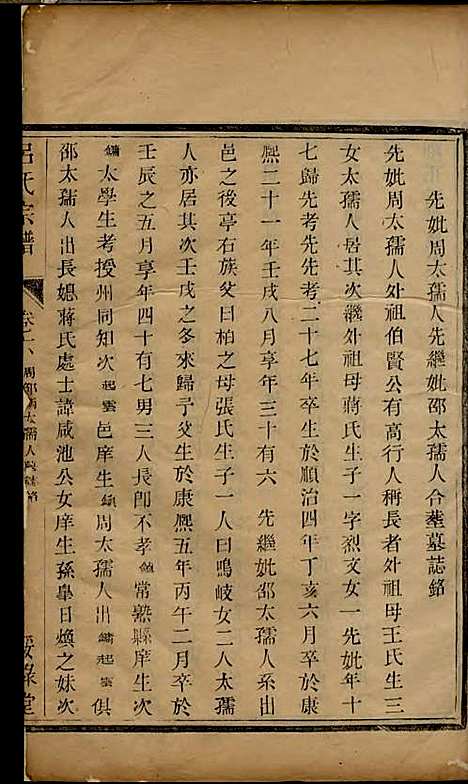 先妣周太孺人先繼妣邵太孺人合葬墓誌銘
先妣周太孺人外祖伯賢公有高行人稱長者外祖母王氏生三
女太孺人居其次繼外祖母蔣氏生子一字烈文女一先妣年十
七歸先考先先考二十七年卒生於順治四年丁亥六月卒於康
熙二十一年壬戌八月享年三十有六 先繼妣邵太孺人系出
邑之後亭右族父曰柏之母張氏生子一人曰鳴岐女二人太孺
人亦居其次壬戌之冬來歸予父生於康熙五年丙午二月卒於
壬辰之五月享年四十有七男三人長卽不孝 常熟縣庠生次
鏞太學生考授州同知次起雲邑庠生 周太孺人出鏞起雲俱
邵太孺人出長媳蔣氏處士諱咸池公女庠生孫學日煥之妹次
呂氏宗譜
卷十八
綏祿堂